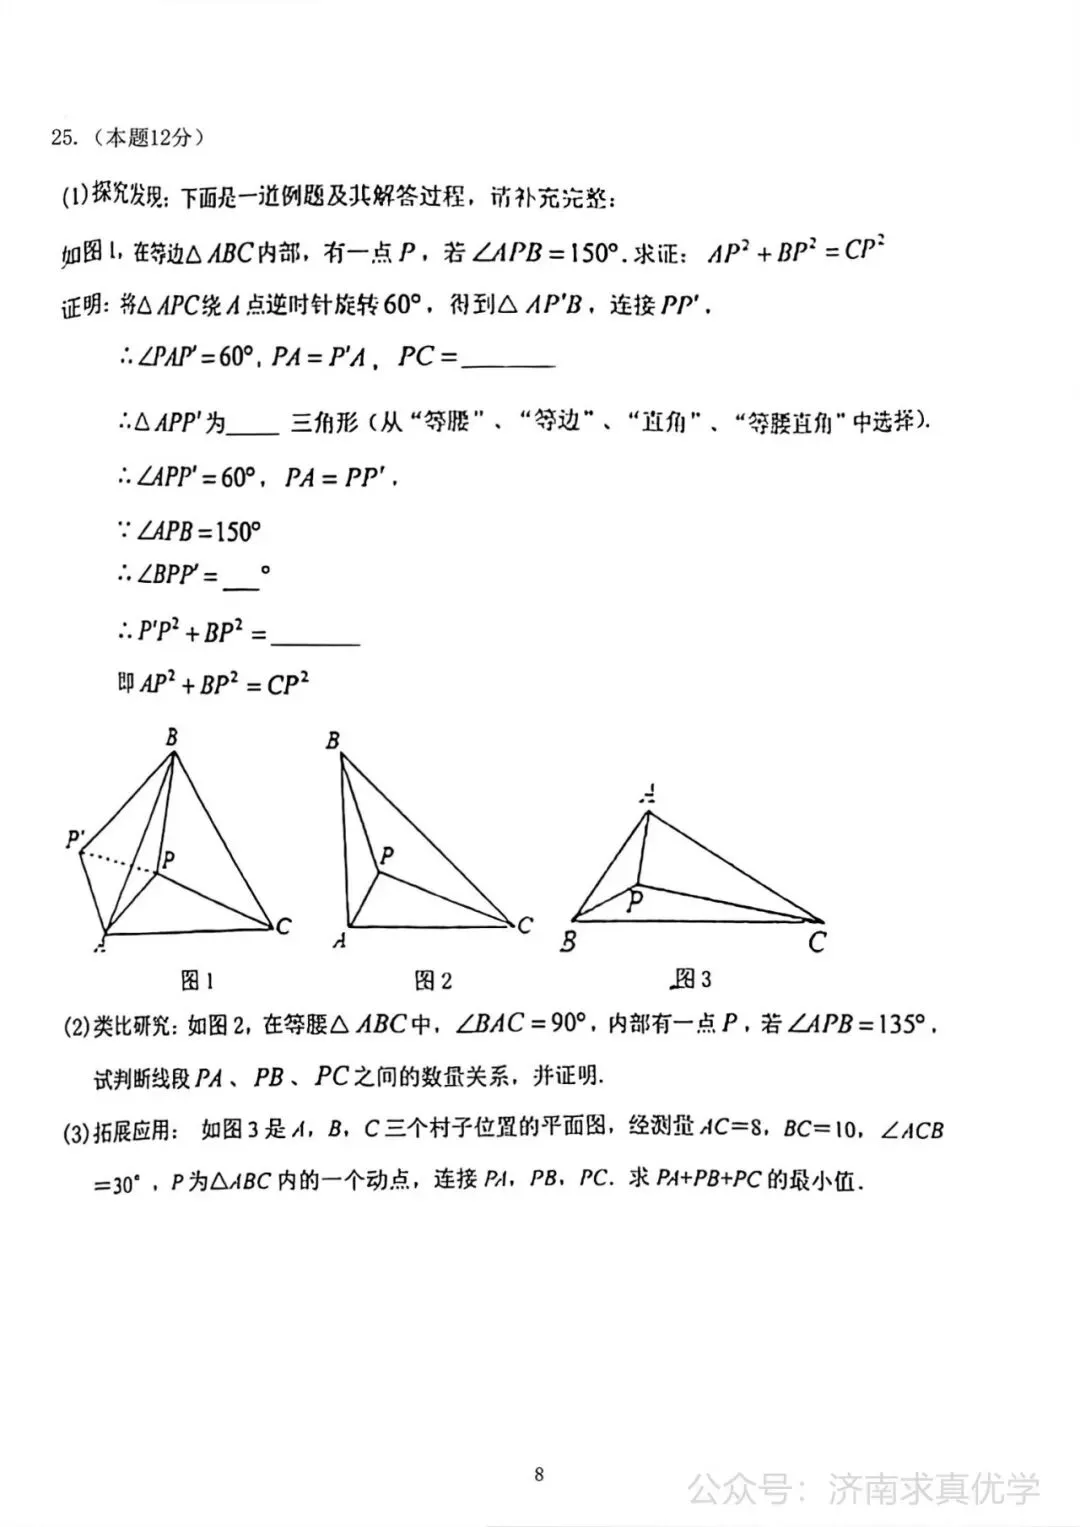 25.（本题12分）
(1)探究发现：下面是一道例题及其解答过程，请补充完整：
如图1，在等边△ABC内部，有一点P，若∠APB=150°.求证：AP²+BP²=CP²
证明：将△APC绕A点逆时针旋转60°，得到△AP'B，连接PP'.
∴∠PAP'=60°，PA=P'A，PC=________
∴△APP'为____ 三角形（从“等腰”、“等边”、“直角”、“等腰直角”中选择）.
∴∠APP'=60°，PA=PP'.
∵∠APB=150°
∴∠BPP'=___°
∴P'P²+BP²=_______
即AP²+BP²=CP²
B
P'
P
A
C
图1
B
P
A
C
图2
A
P
B
C
图3
(2)类比研究：如图2，在等腰△ABC中，∠BAC=90°，内部有一点P，若∠APB=135°，
试判断线段PA、PB、PC之间的数量关系，并证明.
(3)拓展应用：如图3是A，B，C三个村子位置的平面图，经测量AC=8，BC=10，∠ACB
=30°，P为△ABC内的一个动点，连接PA，PB，PC．求PA+PB+PC的最小值．
8
公众号：济南求真优学